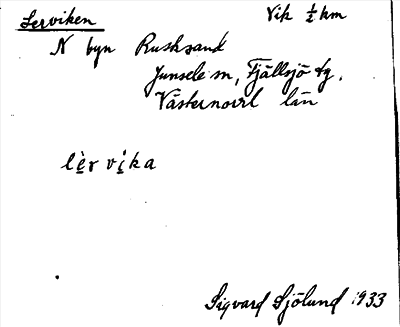 Lerviken Vik ½ km
N byn Rusksand
Junsele sn, Fjällsjö tg.
Västernorrl län
lèr vika
Sigvard Sjölund 1933